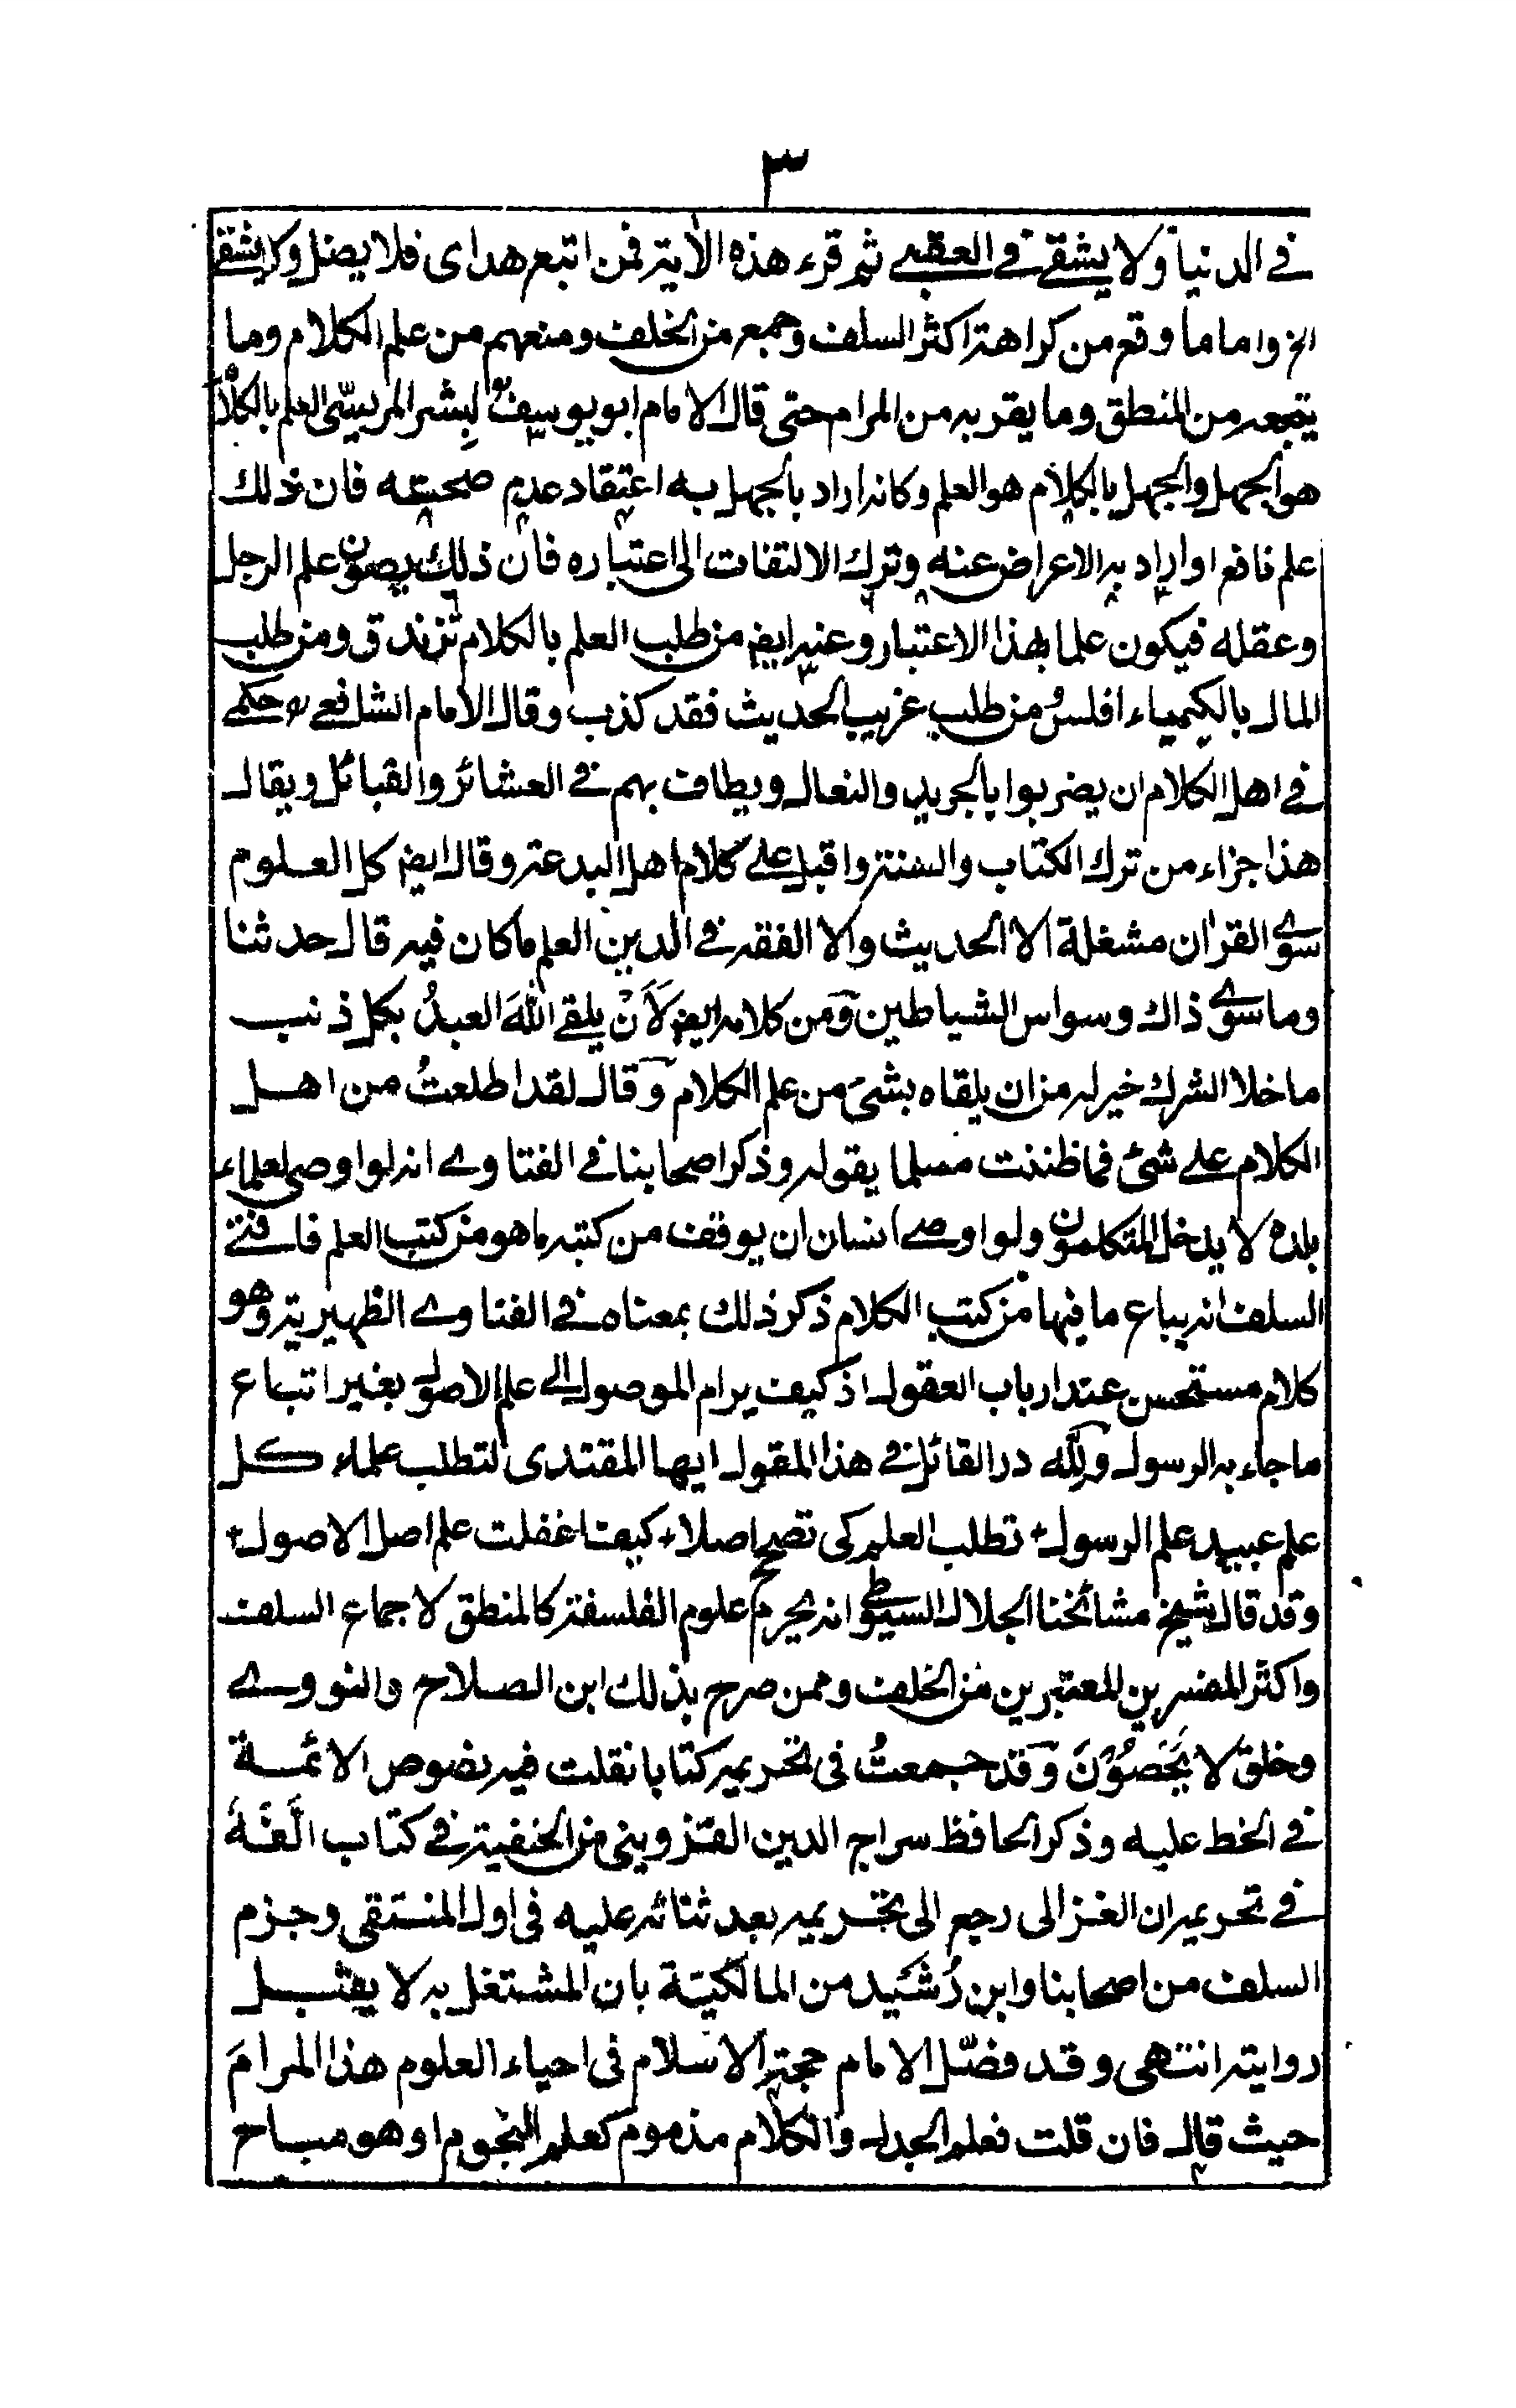 ٣
في الدنيا ولا يشقى في العقبى ثم قرء هذه الأية فمن اتبع هداى فلا يضل ولا يشقى
الخ واما ما وقع من كراهة اكثر السلف وجمع من الخلف ومنعهم من علم الكلام وما
يتبعه من المنطق وما يقربه من المرام حتى قال الامام ابو يوسف لبشر المريسّى العلم بالكلام
هو الجهل والجهل بالكلام هو العلم وكانه اراد بالجهل به اعتقاد عدم صحته فان ذلك
علم نافع او اراد به الاعراض عنه وترك الالتفات الى اعتباره فان ذلك يصون علم الرجل
وعقله فيكون علما بهذا الاعتبار وعنه ايضا من طلب العلم بالكلام تزندق ومن طلب
المال بالكيمياء افلس ومن طلب غريب الحديث فقد كذب وقال الامام الشافعي رح حكمي
في اهل الكلام ان يضربوا بالجريد والنعال ويطاف بهم في العشائر والقبائل ويقال
هذا جزاء من ترك الكتاب والسنة واقبل على كلام اهل البدعة وقال ايضا كل العلوم
سوى القران مشغلة الا الحديث والا الفقه في الدين العلم ما كان فيه قال حدثنا
وما سوى ذاك وسواس الشياطين ومن كلامه ايضا لَأَنْ يلقى اللهَ العبدُ بكل ذنب
ما خلا الشرك خير له من ان يلقاه بشئ من علم الكلام وقال لقد اطلعتُ من اهل
الكلام على شئ فما ظننت مسلما يقوله وذكر اصحابنا في الفتاوى انه لو اوصى لعلماء
بلده لا يدخل المتكلمون ولو اوصى انسان ان يوقف من كتبه ما هو من كتب العلم فافتى
السلف انه يباع ما فيها من كتب الكلام ذكر ذلك بمعناه في الفتاوى الظهيرية وهو
كلام مستحسن عند ارباب العقول اذ كيف يرام الموصول الى علم الاصول بغير اتباع
ما جاء به الرسول ولله در القائل في هذا المقول ايها المقتدى لتطلب علماء كل
علم عبيد علم الرسول تطلب العلم كى تصحح اصلا كيف اغفلت علم اصل الاصول
وقد قال شيخ مشائخنا الجلال السيوطي انه يحرم علوم الفلسفة كالمنطق لاجماع السلف
واكثر المفسرين المعتبرين من الخلف وممن صرح بذلك ابن الصلاح والنووي
وخلق لا يُحْصَوْنَ وقد جمعتُ في تحريمه كتابا نقلت فيه نصوص الائمة
في الحط عليه وذكر الحافظ سراج الدين القزويني من الحنفية في كتاب الّفَهُ
في تحريمه ان الغزالى رجع الى تحريمه بعد ثنائه عليه فى اول المنتقى وجزم
السلف من اصحابنا وابن رُشَيد من المالكيّة بان المشتغل به لا يقبل
روايته انتهى وقد فصّل الامام حجة الاسلام فى احياء العلوم هذا المرامَ
حيث قال فان قلت فعلم الجدل والكلام مذموم كعلم النجوم او هو مباح